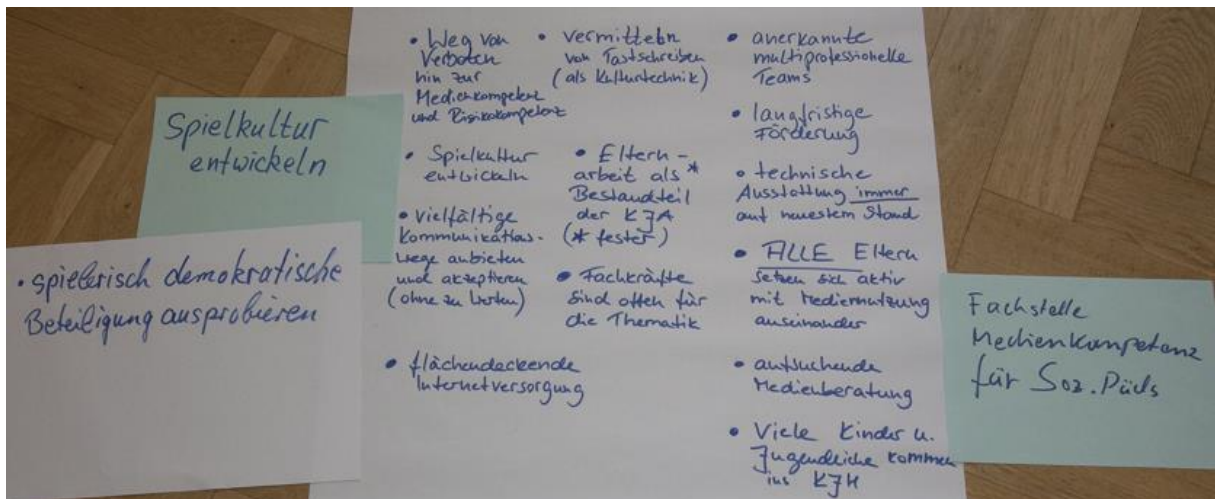 Spielkultur
entwickeln
• spielerisch demokratische
Beteiligung ausprobieren
• Weg von
Verboten
hin zur
Medienkompetenz
und Risikokompetenz
• Spielkultur
entwickeln
• vielfältige
Kommunikations-
wege anbieten
und akzeptieren
(ohne zu werten)
• flächendeckende
Internetversorgung
• vermitteln
von Tastschreiben
(als Kulturtechnik)
• Eltern-
arbeit als *
Bestandteil
der KJA
(* fester)
• Fachkräfte
sind offen für
die Thematik
• anerkannte
multiprofessionelle
Teams
• langfristige
Förderung
• technische
Ausstattung immer
auf neuestem Stand
• ALLE Eltern
setzen sich aktiv
mit Mediennutzung
auseinander
• aufsuchende
Medienberatung
• Viele Kinder u.
Jugendliche kommen
ins KJH
Fachstelle
Medienkompetenz
für Soz.Päds